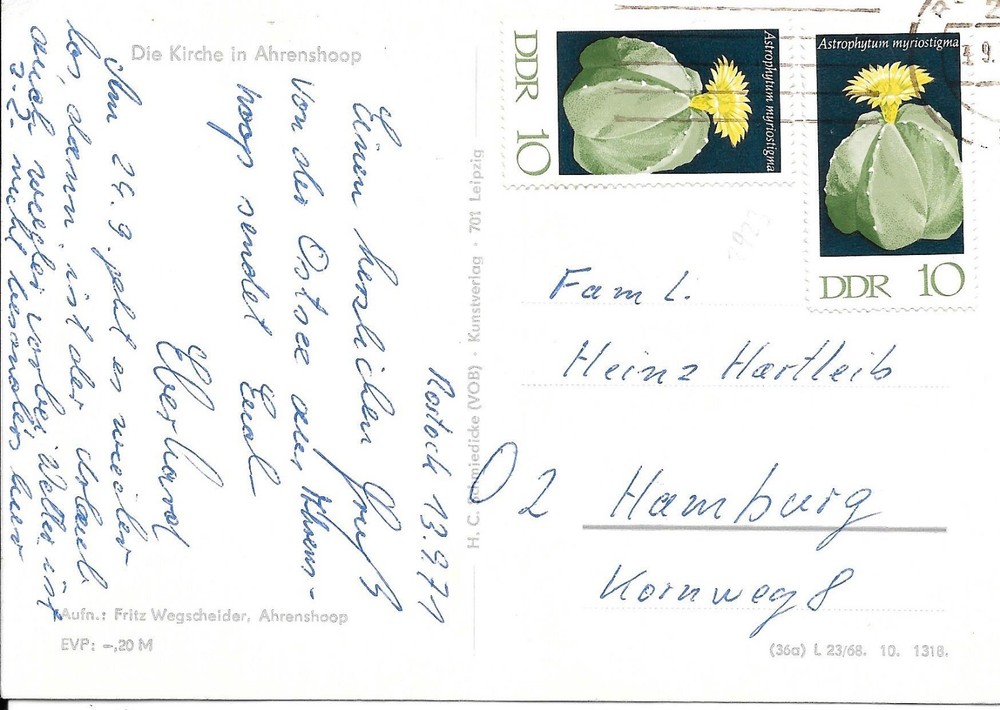 Die Kirche in Ahrenshoop
Rostock 13.9.71
Einen herzlichen Gruß
von der Ostsee aus Ahrens-
hoop sendet Euch
Eberhard
Am 24.9. geht es wieder
los, dann ist der Urlaub
auch wieder vorbei. Wetter ist
z.Z. nicht besonders hier
Aufn.: Fritz Wegscheider, Ahrenshoop
EVP: –,20 M
H. C. Schmiedicke (VOB) · Kunstverlag · 701 Leipzig
Astrophytum myriostigma
DDR 10
Astrophytum myriostigma
DDR 10
Faml.
Heinz Hartleib
2 Hamburg
Kornweg 8
(36a) L 23/68. 10. 1318.